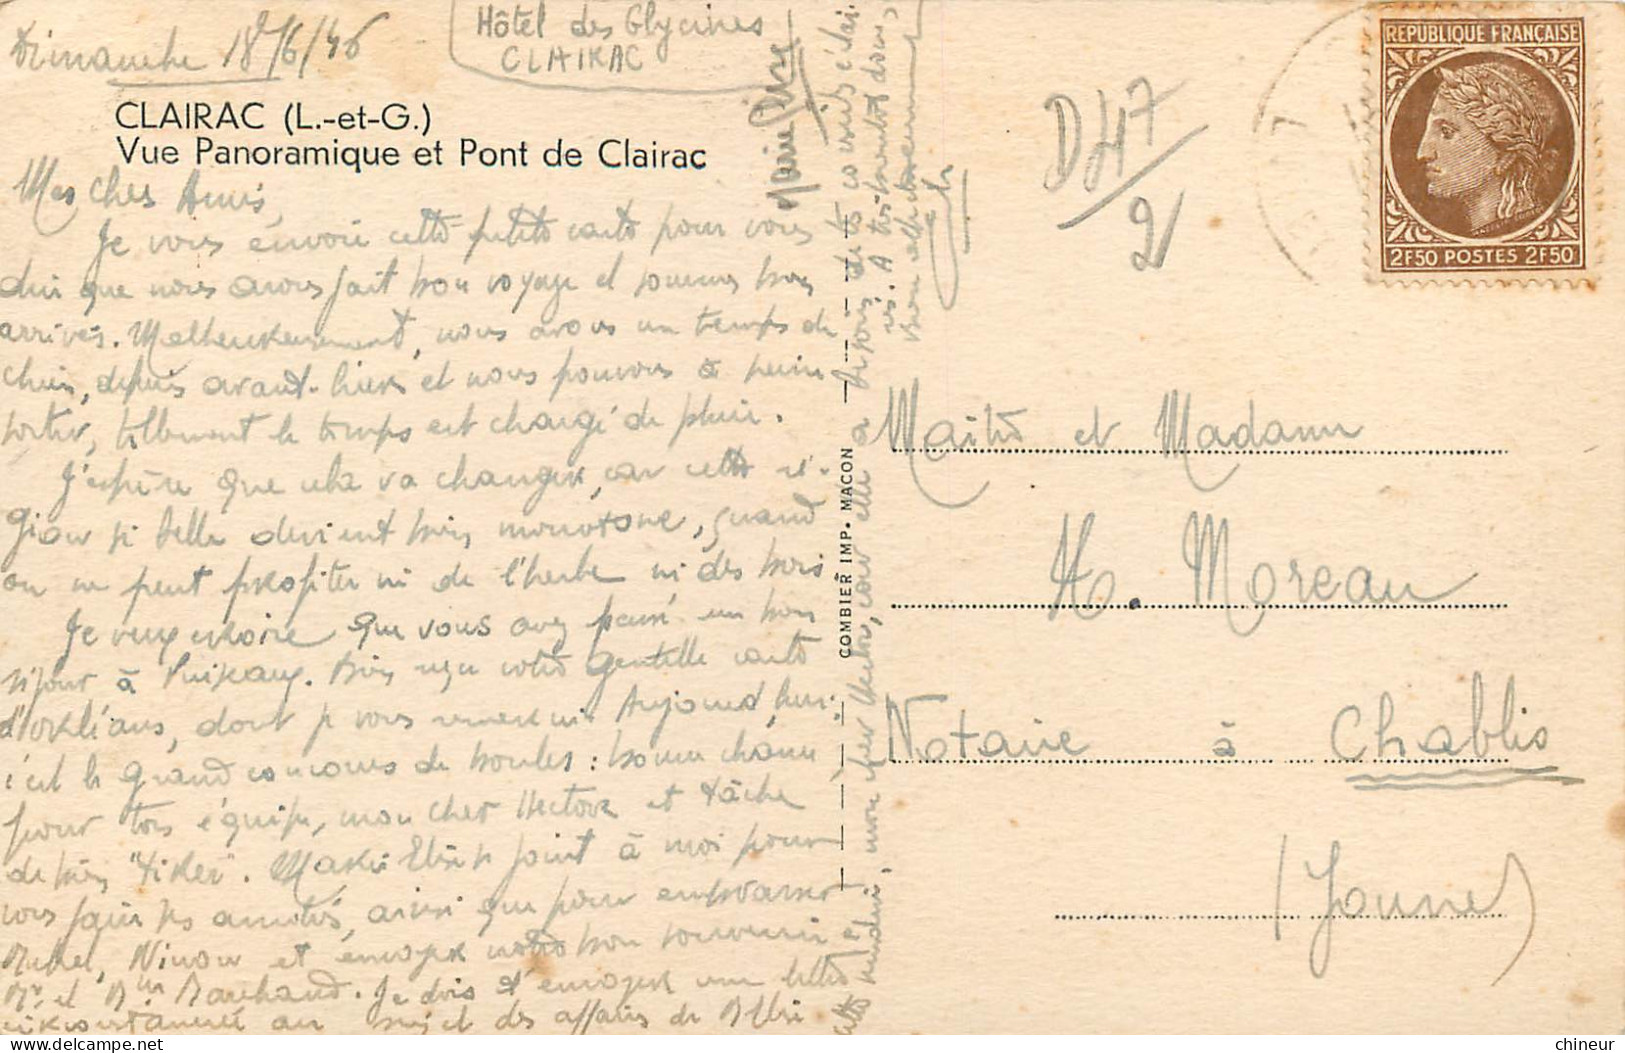 Dimanche 18/6/46
Hôtel des Glycines
CLAIRAC
CLAIRAC (L.-et-G.)
Vue Panoramique et Pont de Clairac
Mes chers Amis,
Je vous envoie cette petite carte pour vous
dire que nous avons fait bon voyage et sommes bien
arrivés. Malheureusement, nous avons un temps de
chien, depuis avant-hier et nous pouvons à peine
sortir, tellement le temps est chargé de pluie.
J'espère que cela va changer, car cette ré-
gion si belle devient bien monotone, quand
on ne peut profiter ni de l'herbe ni des bois
Je veux croire que vous avez passé un bon
séjour à Puiseaux. Bien reçu votre gentille carte
d'Orléans, dont je vous remercie. Aujourd'hui,
c'est le grand concours de boules : bonne chance
pour ton équipe, mon cher Hector et tâche
de bien "tirer". Marie se joint à moi pour
vous faire ses amitiés, ainsi que pour embrasser
Michel, Ninow et envoyer notre bon souvenir à
Mr et Mme Marchand. Je dois t'envoyer une lettre
circonstanciée au sujet des affaires de
cette, mon cher Hector, car elle a besoin de tes conseils éclai-
rés. A très bientôt donc,
bien affectueusement
Marie
COMBIER IMP. MACON
D47/2
RÉPUBLIQUE FRANÇAISE
2F50 POSTES 2F50
Maître et Madame
H. Moreau
Notaire à Chablis
(Yonne)
chineur